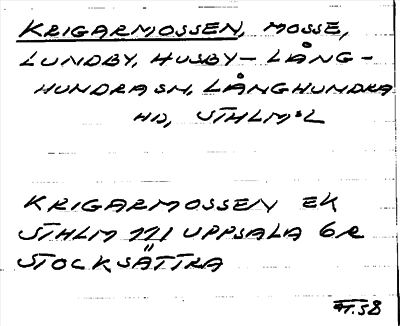 KRIGARMOSSEN, MOSSE,
LUNDBY, HUSBY-LÅNG-
HUNDRA SN, LÅNGHUNDRA
HD, STHLM:S L
KRIGARMOSSEN EK
STHLM 111 UPPSALA 6R
STOCKSÄTTRA